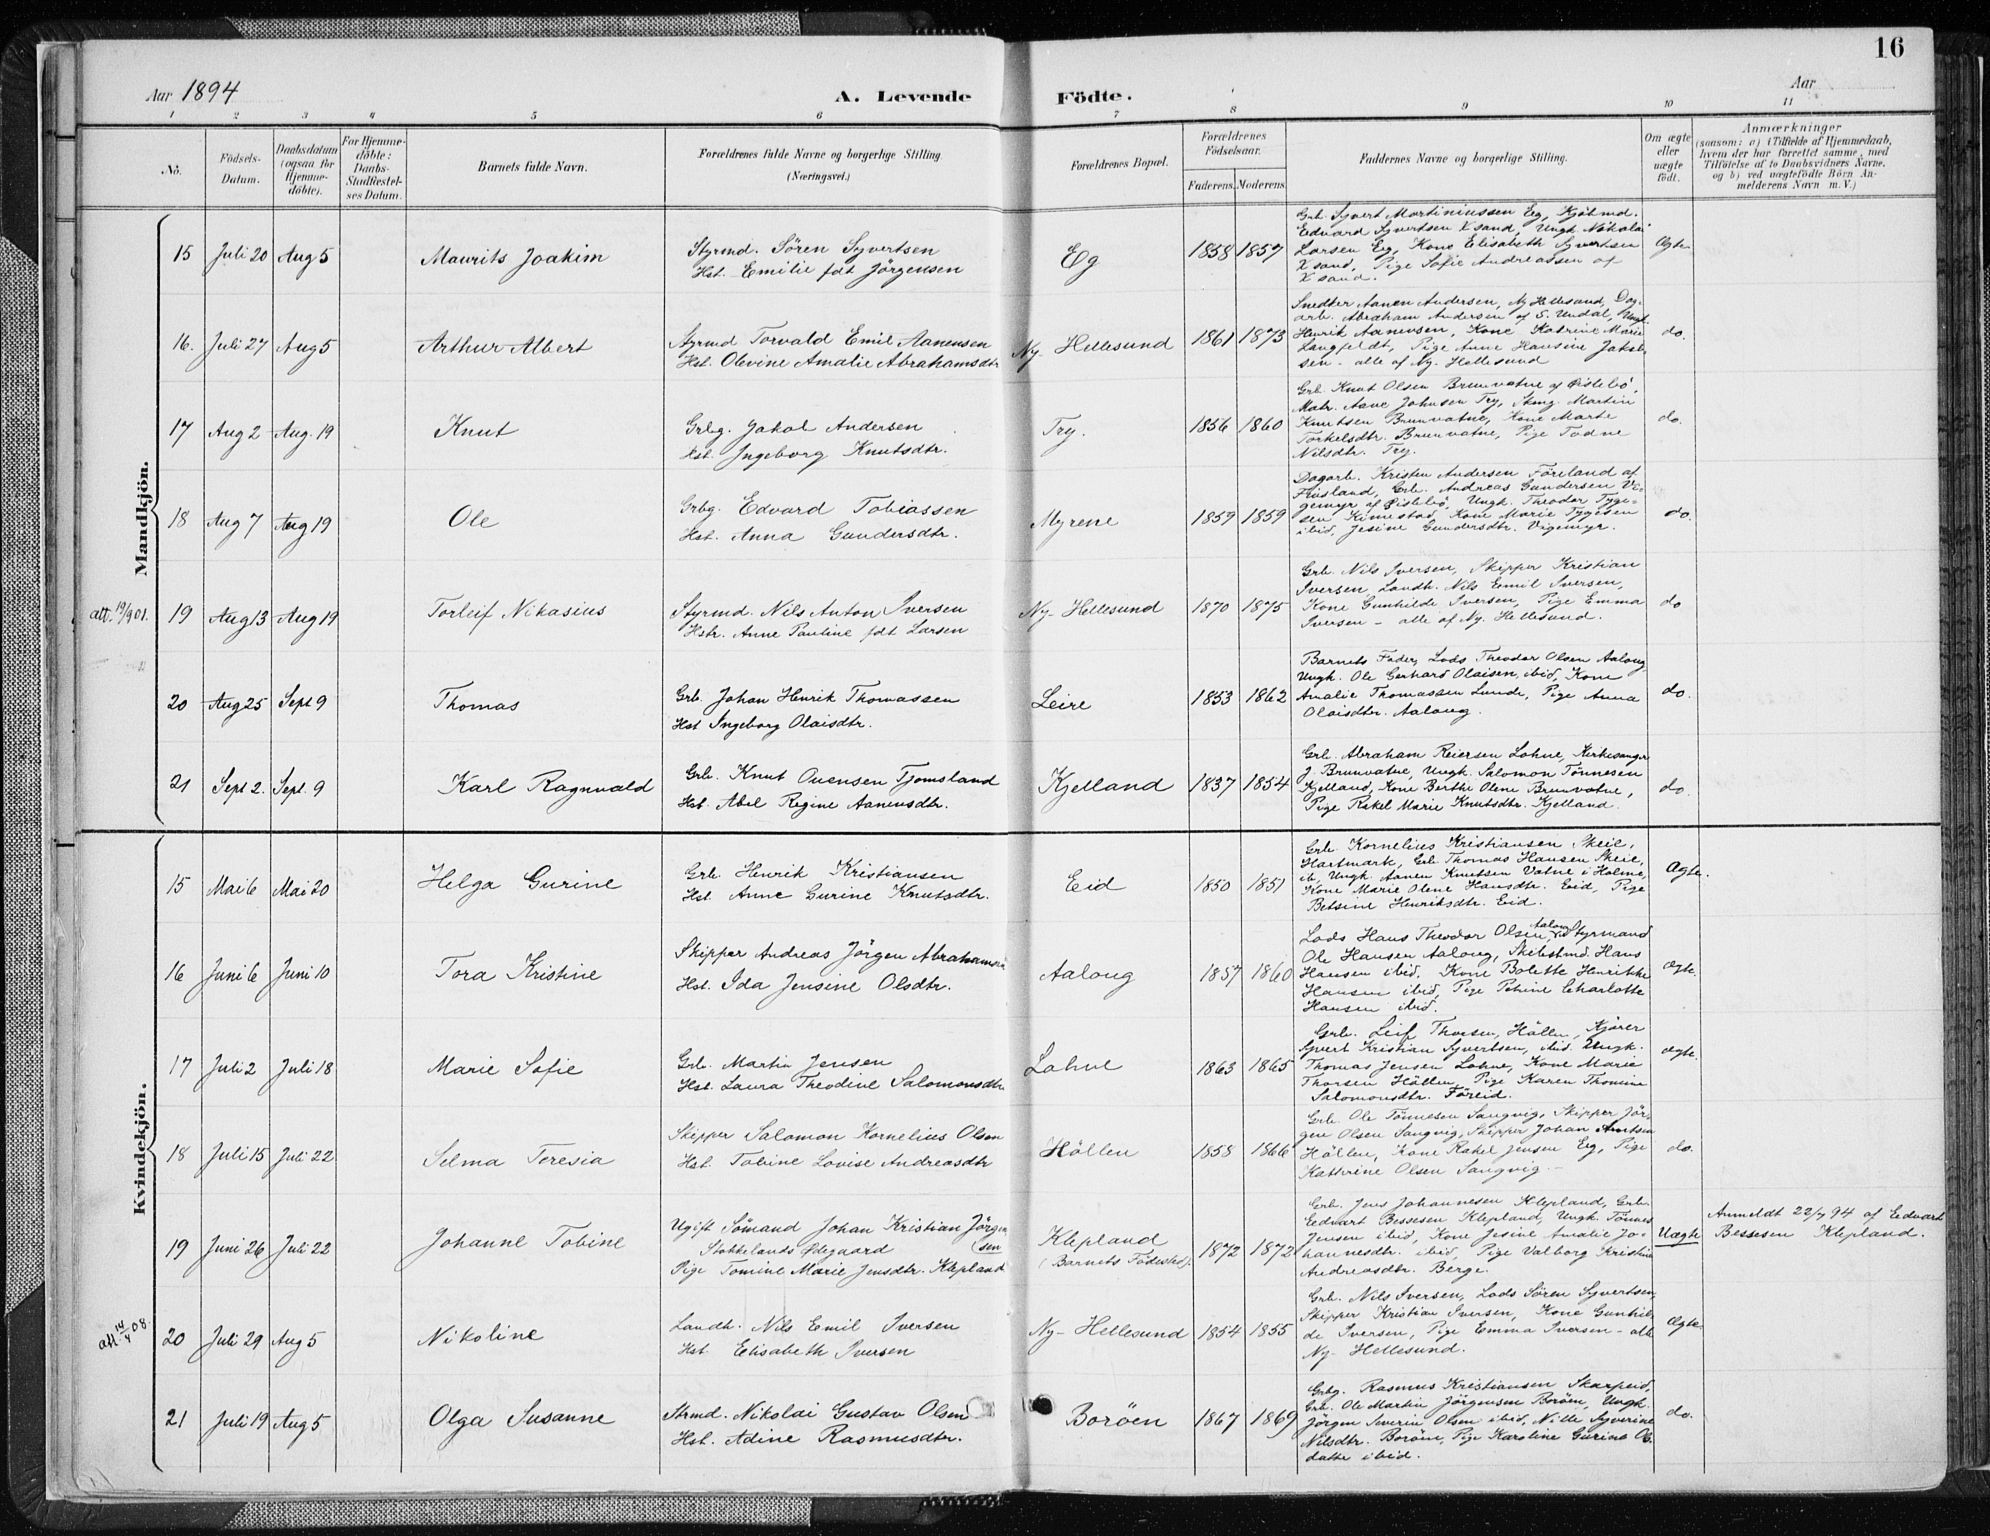 16
Aar 1894
A. Levende Födte.
Aar
1 2 3 4 5 6 7 8 9 10 11
No.
Födsels-Datum.
Daabsdatum (ogsaa for Hjemme-döbte).
For Hjemme-döbte: Daabs-Stadfæstel-ses Datum.
Barnets fulde Navn.
Forældrenes fulde Navne og borgerlige Stilling (Næringsvei.)
Forældrenes Bopæl.
Forældrenes Födselsaar.
Faderens. Moderens.
Faddernes Navne og borgerlige Stilling.
Om ægte eller uægte födt.
Anmærkninger
(saasom: a) i Tilfælde af Hjemmedaab,
hvem der har forrettet samme, med
Tilföielse af to Daabsvidners Navne,
og b) ved uægtefödte Börn An-
melderens Navn m. V.)
Mandkjön.
15 Juli 20 Aug 5 Maurits Joakim
Styrmd. Sören Syvertsen
Hst. Emilie fdt Jörgensen
Eg 1858 1857
Grb. Syvert Martiniussen Eg, Kjöbmd.
Edvard Syvertsen Xsand, Ungk Nikolai
Larsen Eg, Kone Elisabeth Syvertsen
Xsand, Pige Sofie Andreassen af
Xsand.
Ægte
16. Juli 27 Aug 5 Arthur Albert
Styrmd Torvald Emil Aanensen
Hst. Olevine Amalie Abrahamsdtr
Ny Hellesund 1861 1873
Snedker Aanen Andersen, Ny Hellesund, Dag-
arb. Abraham Andersen af S. Undal, Ungk.
Henrik Aanensen, Kone Katrine Marie
Langfeldt, Pige Anne Hansine Jakob-
sen - alle af Ny. Hellesund
do.
17 Aug 2 Aug. 19 Knut
Grbg. Jakob Andersen
Hst. Ingeborg Knutsdtr.
Try. 1856 1860
Grb. Knut Olsen Brunvatne af Øislebö,
Matr. Aave Johnsen Try, Skmg. Martin
Knutsen Brunvatne, Kone Marte
Torkelsdtr. Brunvatne, Pige Todne
Nilsdtr. Try.
do.
18 Aug 7 Aug 19 Ole
Grbg. Edvard Tobiassen
Hst. Anna Gundersdtr.
Myrene 1859 1859
Dagarb. Kristen Andersen Föreland af
Finsland, Grb. Andreas Gundersen Vi-
gemyr af Øislebö, Ungk. Theodor Tyge-
sen Kimestad, Kone Marie Tygesen
ibid, Jesine Gundersdtr. Vigemyr.
do.
att. 19/9 01. 19 Aug 13 Aug 19 Torleif Nikasius
Styrmd. Nils Anton Iversen
Hstr. Anne Pauline fdt Larsen
Ny-Hellesund 1870 1875
Grb. Nils Iversen, Skipper Kristian
Iversen, Landh. Nils Emil Iversen,
Kone Gunhilde Iversen, Pige Emma
Iversen - alle af Ny. Hellesund.
do
20 Aug 25 Sept 9 Thomas
Grb. Johan Henrik Thomassen
Hst Ingeborg Olaisdtr.
Leire 1853 1862
Barnets Fader, Lods Theodor Olsen Aalong
Ungk. Ole Gerhard Olaisen, ibid, Kone
Amalie Thomassen Lunde, Pige Anna
Olaisdtr. Aalong.
do.
21 Sept 2. Sept. 9 Karl Ragnvald
Grb. Knut Ouensen Tjomsland
Hst. Abel Regine Aanensdtr.
Kjelland 1837 1854
Grb. Abraham Reiersen Lohne, Kirkesanger
J. Brunvatne, Ungk. Salomon Tönnesen
Kjelland, Kone Berthe Olene Brunvatne,
Pige Rakel Marie Knutsdtr. Kjelland.
do.
Kvindekjön.
15 Mai 6 Mai 20 Helga Gurine
Grb. Henrik Kristiansen
Hst. Anne Gurine Knutsdtr.
Eid 1850 1851
Grb. Kornelius Kristiansen Skeie,
Hartmark, Grb Thomas Hansen Skeie,
ib, Ungk. Aanen Knutsen Vatne i Holme,
Kone Marie Olene Hansdtr. Eid, Pige
Betsine Henriksdtr. Eid.
Ægte.
16 Juni 6 Juni 10 Tora Kristine
Skipper Andreas Jörgen Abrahamsen
Hst. Ida Jensine Olsdtr.
Aalong 1857 1860
Lods Hans Theodor Olsen Aalong, Styrmand
Ole Hansen Aalong, Skibstmd. Hans
Hansen ibid, Kone Bolette Henrikke
Hansen ibid, Pige Petrine Charlotte
Hansen ibid.
ægte.
17 Juli 2 Juli 18 Marie Sofie
Grb. Martin Jensen
Hst. Laura Theodine Salomonsdtr
Lohne 1863 1865
Grb. Leif Thorsen, Höllen, Kjörer
Syvert Kristian Syvertsen, ibid. Ungk.
Thomas Jensen Lohne, Kone Marie
Thorsen Höllen, Pige Karen Thomine
Salomonsdtr. Föreid.
ægte.
18 Juli 15 Juli 22 Selma Teresia
Skipper Salomon Kornelius Olsen
Hst. Tobine Lovise Andreasdtr
Höllen 1858 1866
Grb. Ole Tönnesen Sangvig, Skipper Jör-
gen Olsen Sangvig, Skipper Johan Arntsen
Höllen, Kone Rakel Jensen Eg, Pige
Kathrine Olsen Sangvig.
do.
19 Juni 26 Juli 22 Johanne Tobine
Ugift Sömand Johan Kristian Jörgen
Stokkelands Ødegaard (sen
Pige Tomine Marie Jensdtr. Klepland
Klepland
(Barnets Födested). 1872 1872
Grb. Jens Johannesen Klepland, Grb.
Eedvart Bessesen Klepland, Ungk. Tönnes
Jensen ibid, Kone Jesine Amalie Jo-
hannesdtr. ibid, Pige Valborg Kristine
Andreasdtr. Berge.
Uægte
Anmeldt 22/7 94 af Eedvart
Bessesen Klepland.
att 14/4 08. 20 Juli 29 Aug 5 Nikoline
Landh. Nils Emil Iversen
Hst. Elisabeth Iversen
Ny-Hellesund 1854 1855
Grb. Nils Iversen, Lods Sören Syvertsen,
Skipper Kristian Iversen, Kone Gunhil-
de Iversen, Pige Emma Iversen - alle
Ny-Hellesund.
Ægte.
21 Juli 19 Aug 5 Olga Susanne
Strmd. Nikolai Gustav Olsen
Hst. Adine Rasmusdtr.
Boröen 1867 1869
Grbg. Rasmus Kristiansen Skarpeid,
Grb. Ole Martin Jörgensen Boröen, Ungk.
Jörgen Severin Olsen ibid, Nille Syverine
Nilsdtr. Boröen, Pige Karoline Gurine Ols
datter ibid.
do.